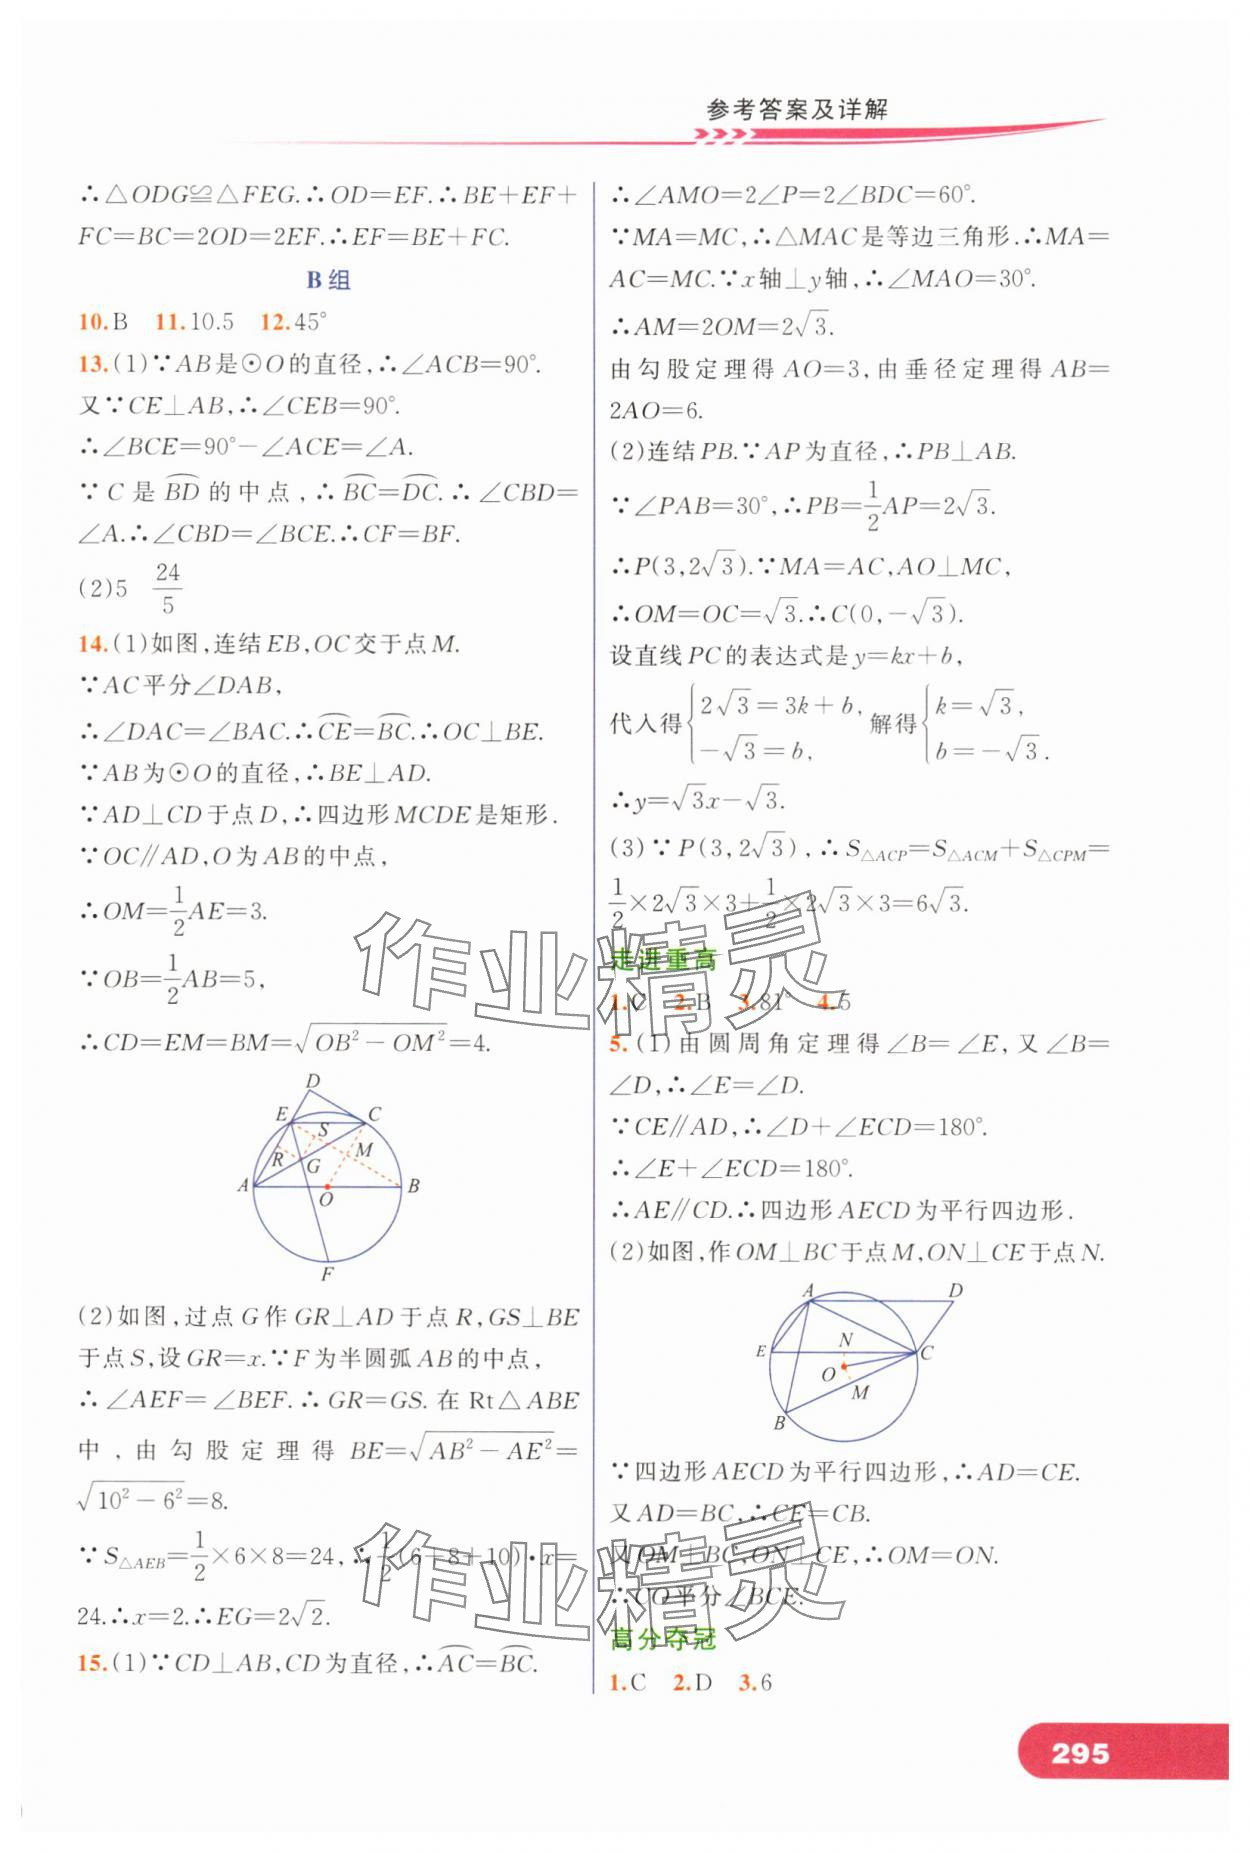 参考答案及详解
∴△ODG≌△FEG.∴OD=EF.∴BE+EF+
FC=BC=2OD=2EF.∴EF=BE+FC.
B组
10.B 11.10.5 12.45°
13.(1)∵AB是⊙O的直径,∴∠ACB=90°.
又∵CE⊥AB,∴∠CEB=90°.
∴∠BCE=90°-∠ACE=∠A.
∵C是$\overset{\frown}{BD}$的中点,∴$\overset{\frown}{BC}$=$\overset{\frown}{DC}$.∴∠CBD=
∠A.∴∠CBD=∠BCE.∴CF=BF.
(2)5 $\frac{24}{5}$
14.(1)如图,连结EB,OC交于点M.
∵AC平分∠DAB,
∴∠DAC=∠BAC.∴$\overset{\frown}{CE}$=$\overset{\frown}{BC}$.∴OC⊥BE.
∵AB为⊙O的直径,∴BE⊥AD.
∵AD⊥CD于点D,∴四边形MCDE是矩形.
∵OC∥AD,O为AB的中点,
∴OM=$\frac{1}{2}$AE=3.
∵OB=$\frac{1}{2}$AB=5,
∴CD=EM=BM=$\sqrt{OB^2-OM^2}$=4.
D
E
C
S
R
G
M
A
O
B
F
(2)如图,过点G作GR⊥AD于点R,GS⊥BE
于点S,设GR=x.∵F为半圆弧AB的中点,
∴∠AEF=∠BEF.∴GR=GS.在Rt△ABE
中,由勾股定理得BE=$\sqrt{AB^2-AE^2}$=
$\sqrt{10^2-6^2}$=8.
∵S△AEB=$\frac{1}{2}$×6×8=24,∴$\frac{1}{2}$(6+8+10)·x=
24.∴x=2.∴EG=2$\sqrt{2}$.
15.(1)∵CD⊥AB,CD为直径,∴$\overset{\frown}{AC}$=$\overset{\frown}{BC}$.
∴∠AMO=2∠P=2∠BDC=60°.
∵MA=MC,∴△MAC是等边三角形.∴MA=
AC=MC.∵x轴⊥y轴,∴∠MAO=30°.
∴AM=2OM=2$\sqrt{3}$.
由勾股定理得AO=3,由垂径定理得AB=
2AO=6.
(2)连结PB.∵AP为直径,∴PB⊥AB.
∵∠PAB=30°,∴PB=$\frac{1}{2}$AP=2$\sqrt{3}$.
∴P(3,2$\sqrt{3}$).∵MA=AC,AO⊥MC,
∴OM=OC=$\sqrt{3}$.∴C(0,-$\sqrt{3}$).
设直线PC的表达式是y=kx+b,
代入得$\begin{cases}2\sqrt{3}=3k+b,\\-\sqrt{3}=b,\end{cases}$解得$\begin{cases}k=\sqrt{3},\\b=-\sqrt{3}.\end{cases}$
∴y=$\sqrt{3}$x-$\sqrt{3}$.
(3)∵P(3,2$\sqrt{3}$),∴S△ACP=S△ACM+S△CPM=
$\frac{1}{2}$×2$\sqrt{3}$×3+$\frac{1}{2}$×2$\sqrt{3}$×3=6$\sqrt{3}$.
走进重高
1.C 2.B 3.81° 4.5
5.(1)由圆周角定理得∠B=∠E,又∠B=
∠D,∴∠E=∠D.
∵CE∥AD,∴∠D+∠ECD=180°.
∴∠E+∠ECD=180°.
∴AE∥CD.∴四边形AECD为平行四边形.
(2)如图,作OM⊥BC于点M,ON⊥CE于点N.
A
D
E
N
C
O
M
B
∵四边形AECD为平行四边形,∴AD=CE.
又AD=BC,∴CE=CB.
又OM⊥BC,ON⊥CE,∴OM=ON.
∴CO平分∠BCE.
高分夺冠
1.C 2.D 3.6
295
作业精灵
作业精灵